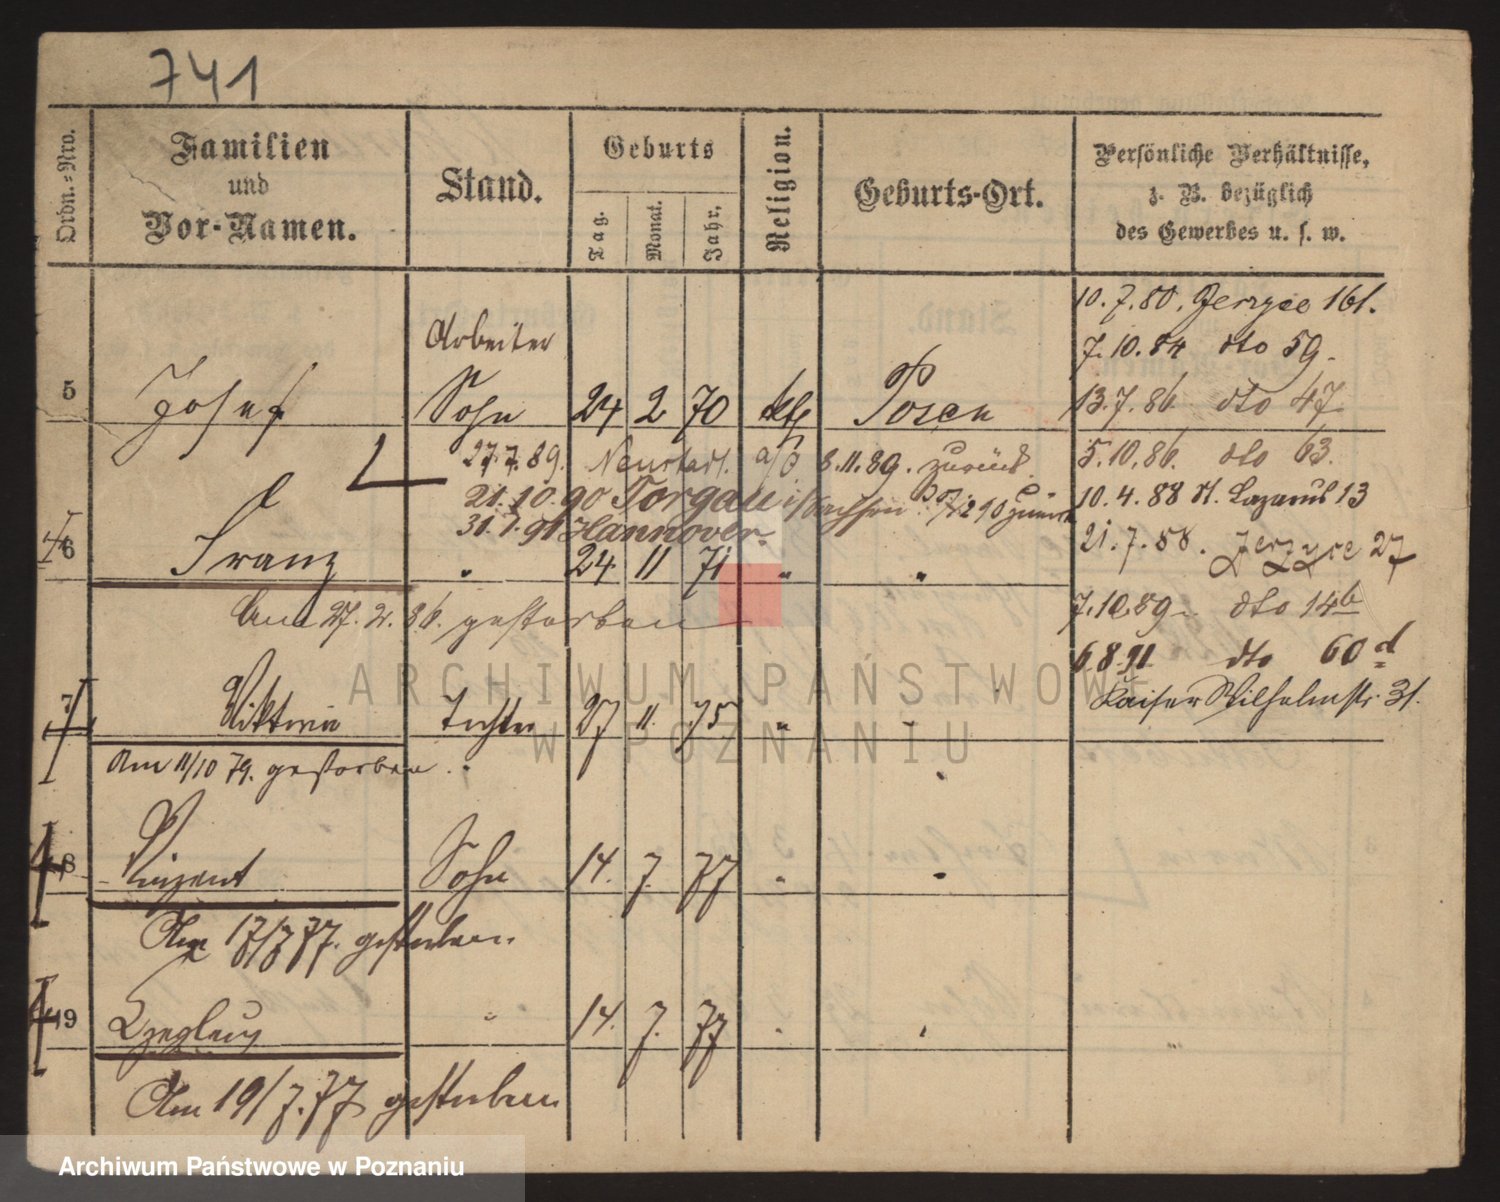 741
Ordn.-Nro.
Familien
und
Vor-Namen.
Stand.
Geburts
Tag.
Monat.
Jahr.
Religion.
Geburts-Ort.
Persönliche Verhältnisse,
z. B. bezüglich
des Gewerbes u. s. w.
10.7.80. Jerzyce 161.
7.10.84 dto 59.
13.7.86 dto 47
5.10.86. dto 63.
10.4.88 St. Lazarus 13
21.7.88. Jerzyce 27
7.10.89. dto 14b
6.8.91 dto 60d
Kaiser Wilhelmstr. 31.
Arbeiter
5 Josef Sohn 24 2 70 kth Posen
27.7.89. Neustadt a/ 8.11.89. zurück
21.10.90 Torgau i/Sachsen 90 zurück
31.7.91 Hannover.
6 Franz " 24 11 71 " "
Am 27.2.86. gestorben
7 Viktoria Tochter 27 11. 75 " "
Am 11/10 79. gestorben.
8 Vinzent Sohn 14. 7. 77 " "
Am 17/7 77. gestorben.
9 " 14. 7. 77 " "
Am 19/7.77 gestorben
ARCHIWUM PAŃSTWOWE
W POZNANIU
Archiwum Państwowe w Poznaniu